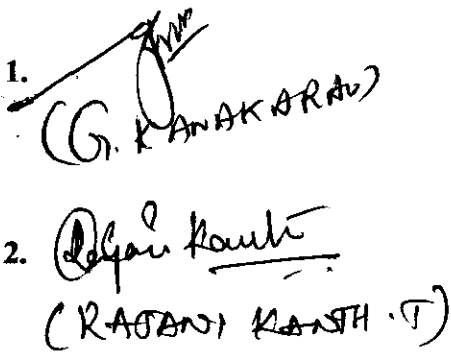 1.
(G. KANAKARAO)
2. Rajani Kanth
(RAJANI KANTH .T)